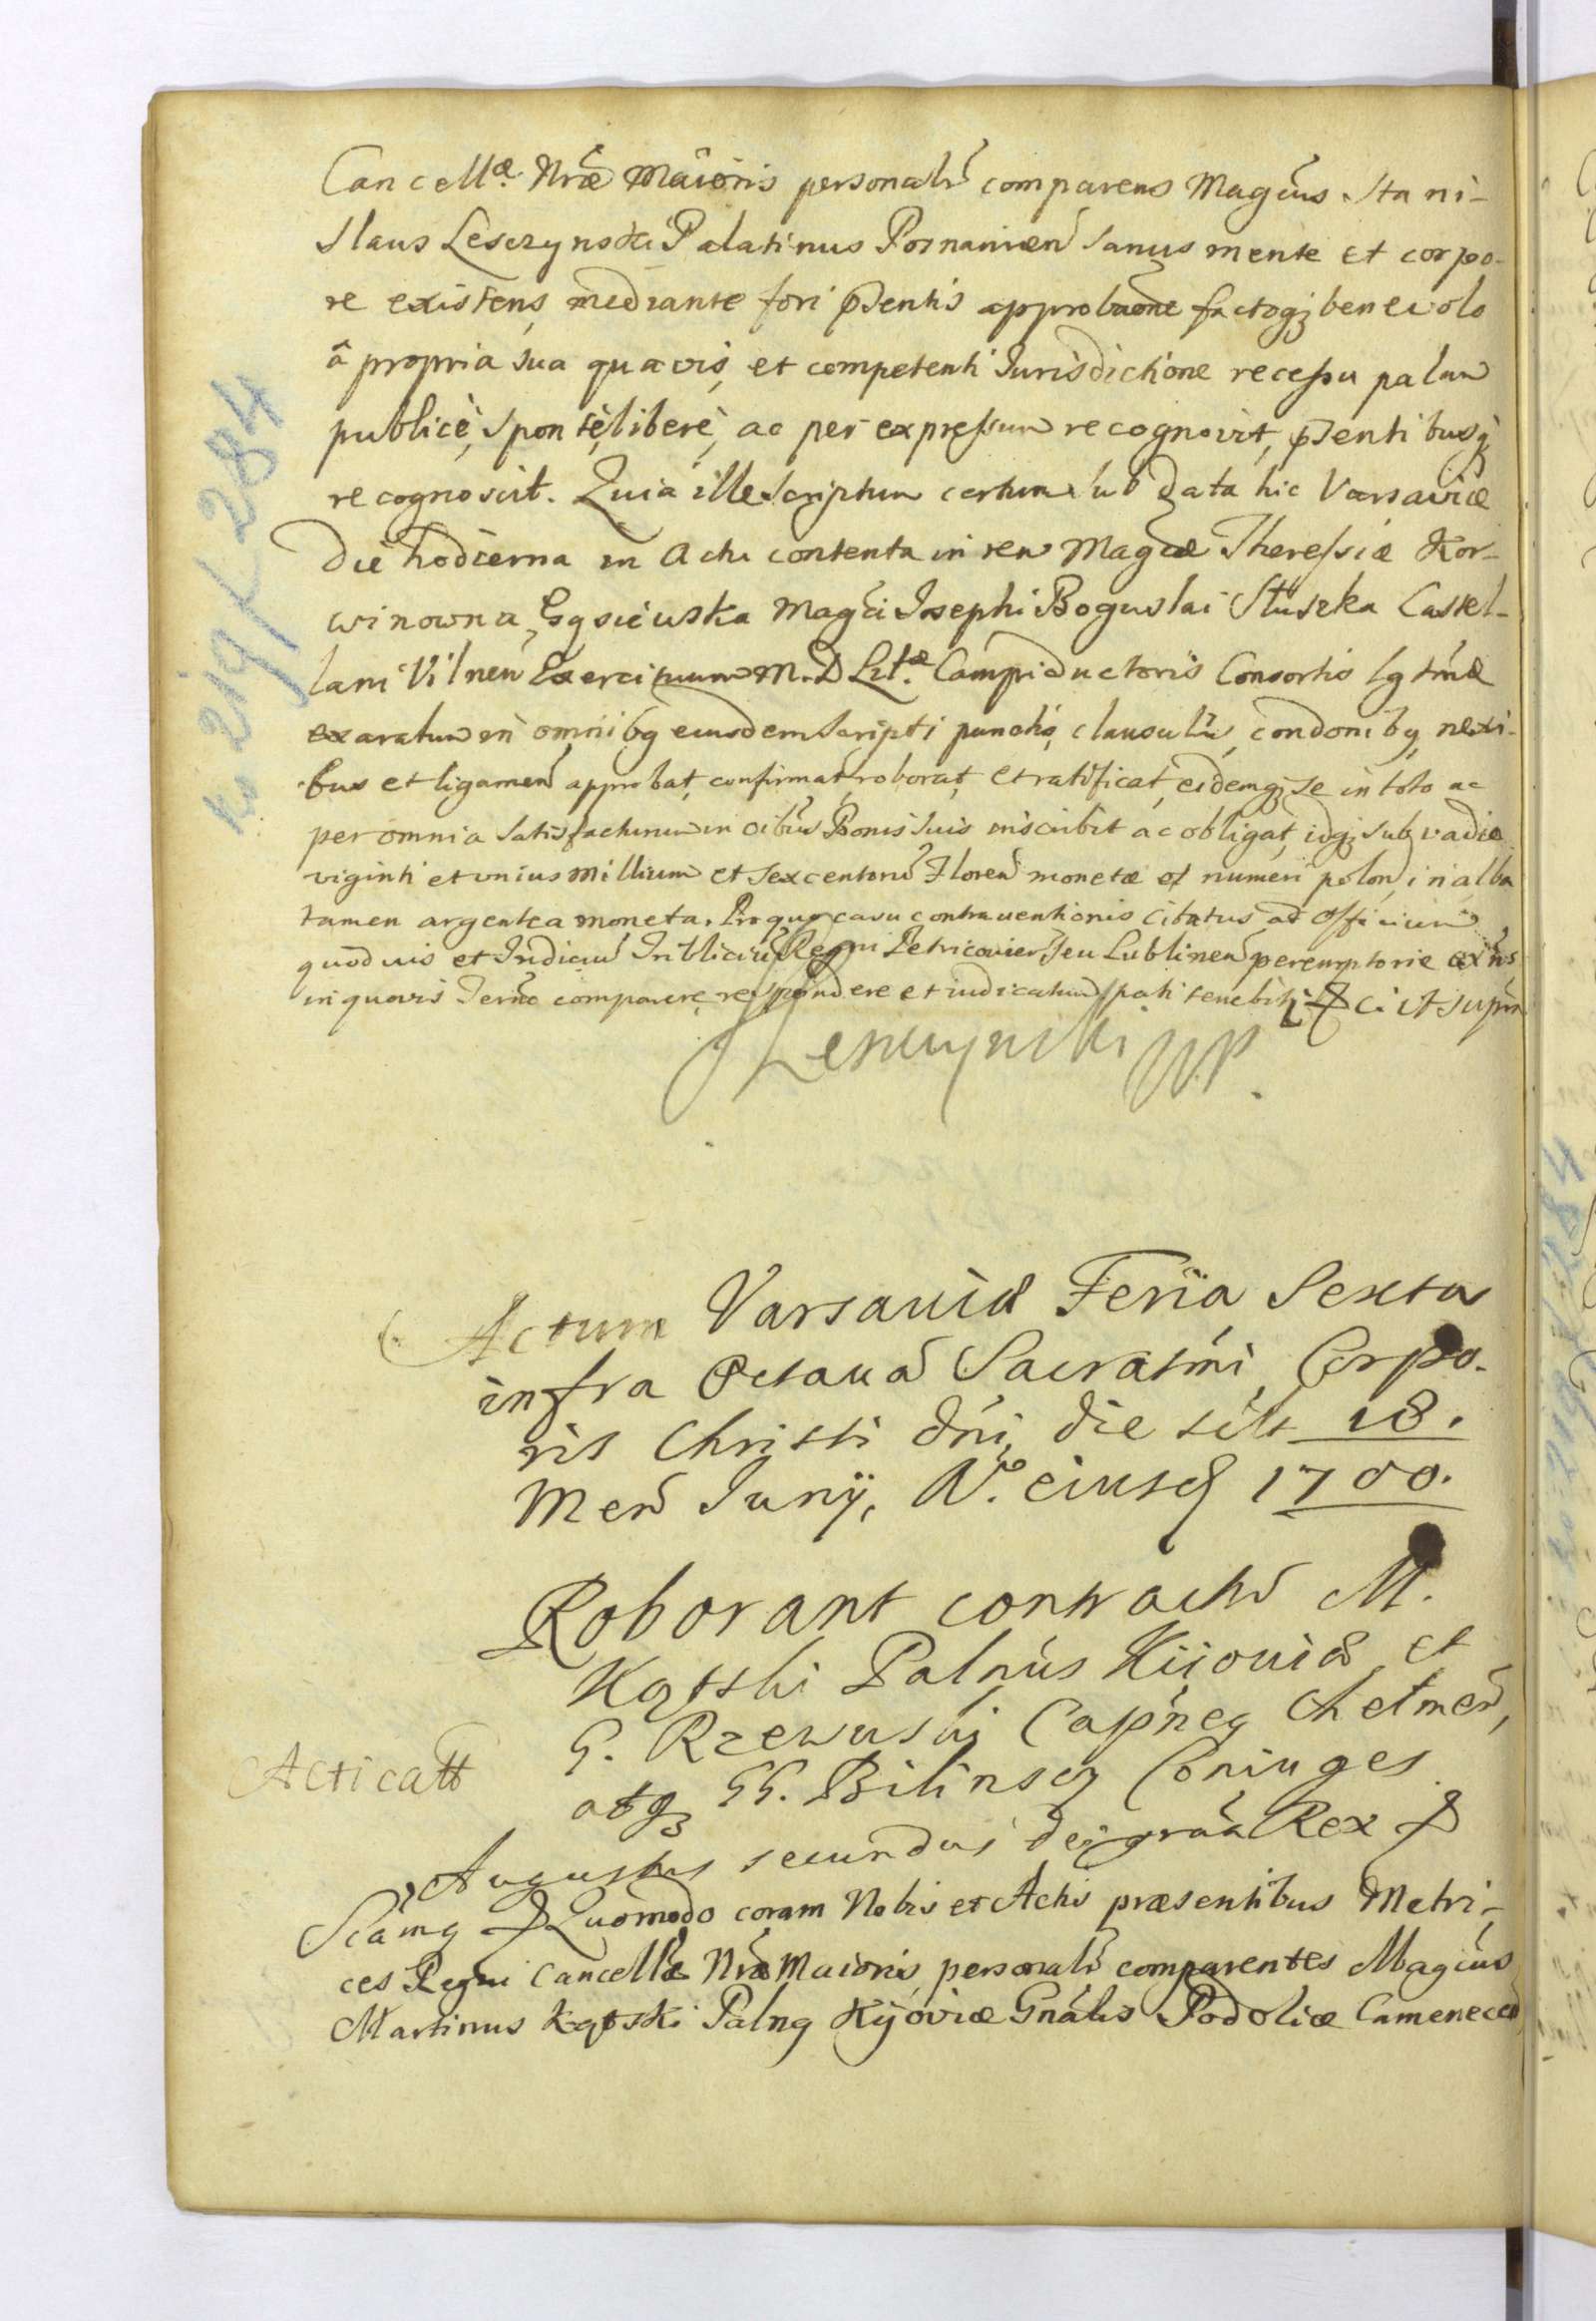 Cancellæ Nræ Maioris personalr comparens Magcus Stani-
slaus Lesczynski Palatinus Posnanien sanus mente et corpo-
re existens, mediante fori pñtis approbaone factoq; benevolo
â propria sua quavis, et competenti Jurisdictione recessu palam
publicè, spontè, liberè, ac per expressum recognovit, pñtibusq;
recognoscit. Quia ille scriptum certum sub data hic Varsaviæ
die hodierna in Actu contenta in rem Magcæ Theressiæ Kor-
winowna Gąsiewska Magci Josephi Boguslai Słuszka Castel-
lani Vilnen Exercituum M. D. Litæ Campiductoris Consortis lgtmæ
exaratum in omnibg eiusdem scripti punctis, clausulis, condonibg, nexi-
bus et ligamen approbat, confirmat, roborat, et ratificat, eidemq; se in toto ac
per omnia satisfacturum in oibus Bonis suis inscribit ac obligat, idq; sub vadio
viginti et unius millium et sexcentoru Floren monetæ et numeri polon, in alba
tamen argentea moneta. Pro quo casu contraventionis citatus ad Officium
quodvis et Judiciu Regni Petricovien seu Lublinen peremptorie
in quovis Termo comparere, respondere et iudicatum pati tenebitr & ci ut supra
SLeszczynski WP.
Actum Varsaviæ Feria Sexta
infra Octauã Sacratmi Corpo-
ris Christi dni, die sclt 18.
Men Junÿ, Aº. eiusd 1700.
Roborant contractu M.
Kątski Palnus Kiioviæ et
G. Rzewuski Capneg Chełmen,
atq; GG. Bilinscy Coniuges
Acticatt
Augustus secundus dei gra Rex &
Scamg & Quomodo coram Nobis et Actis præsentibus Metri-
ces Regni Cancellæ Nræ Maioris personalr comparentes Magcus
Martinus Kątski Palng Kijoviæ Gnalis Podoliæ Camenecen
k. 219 / 284